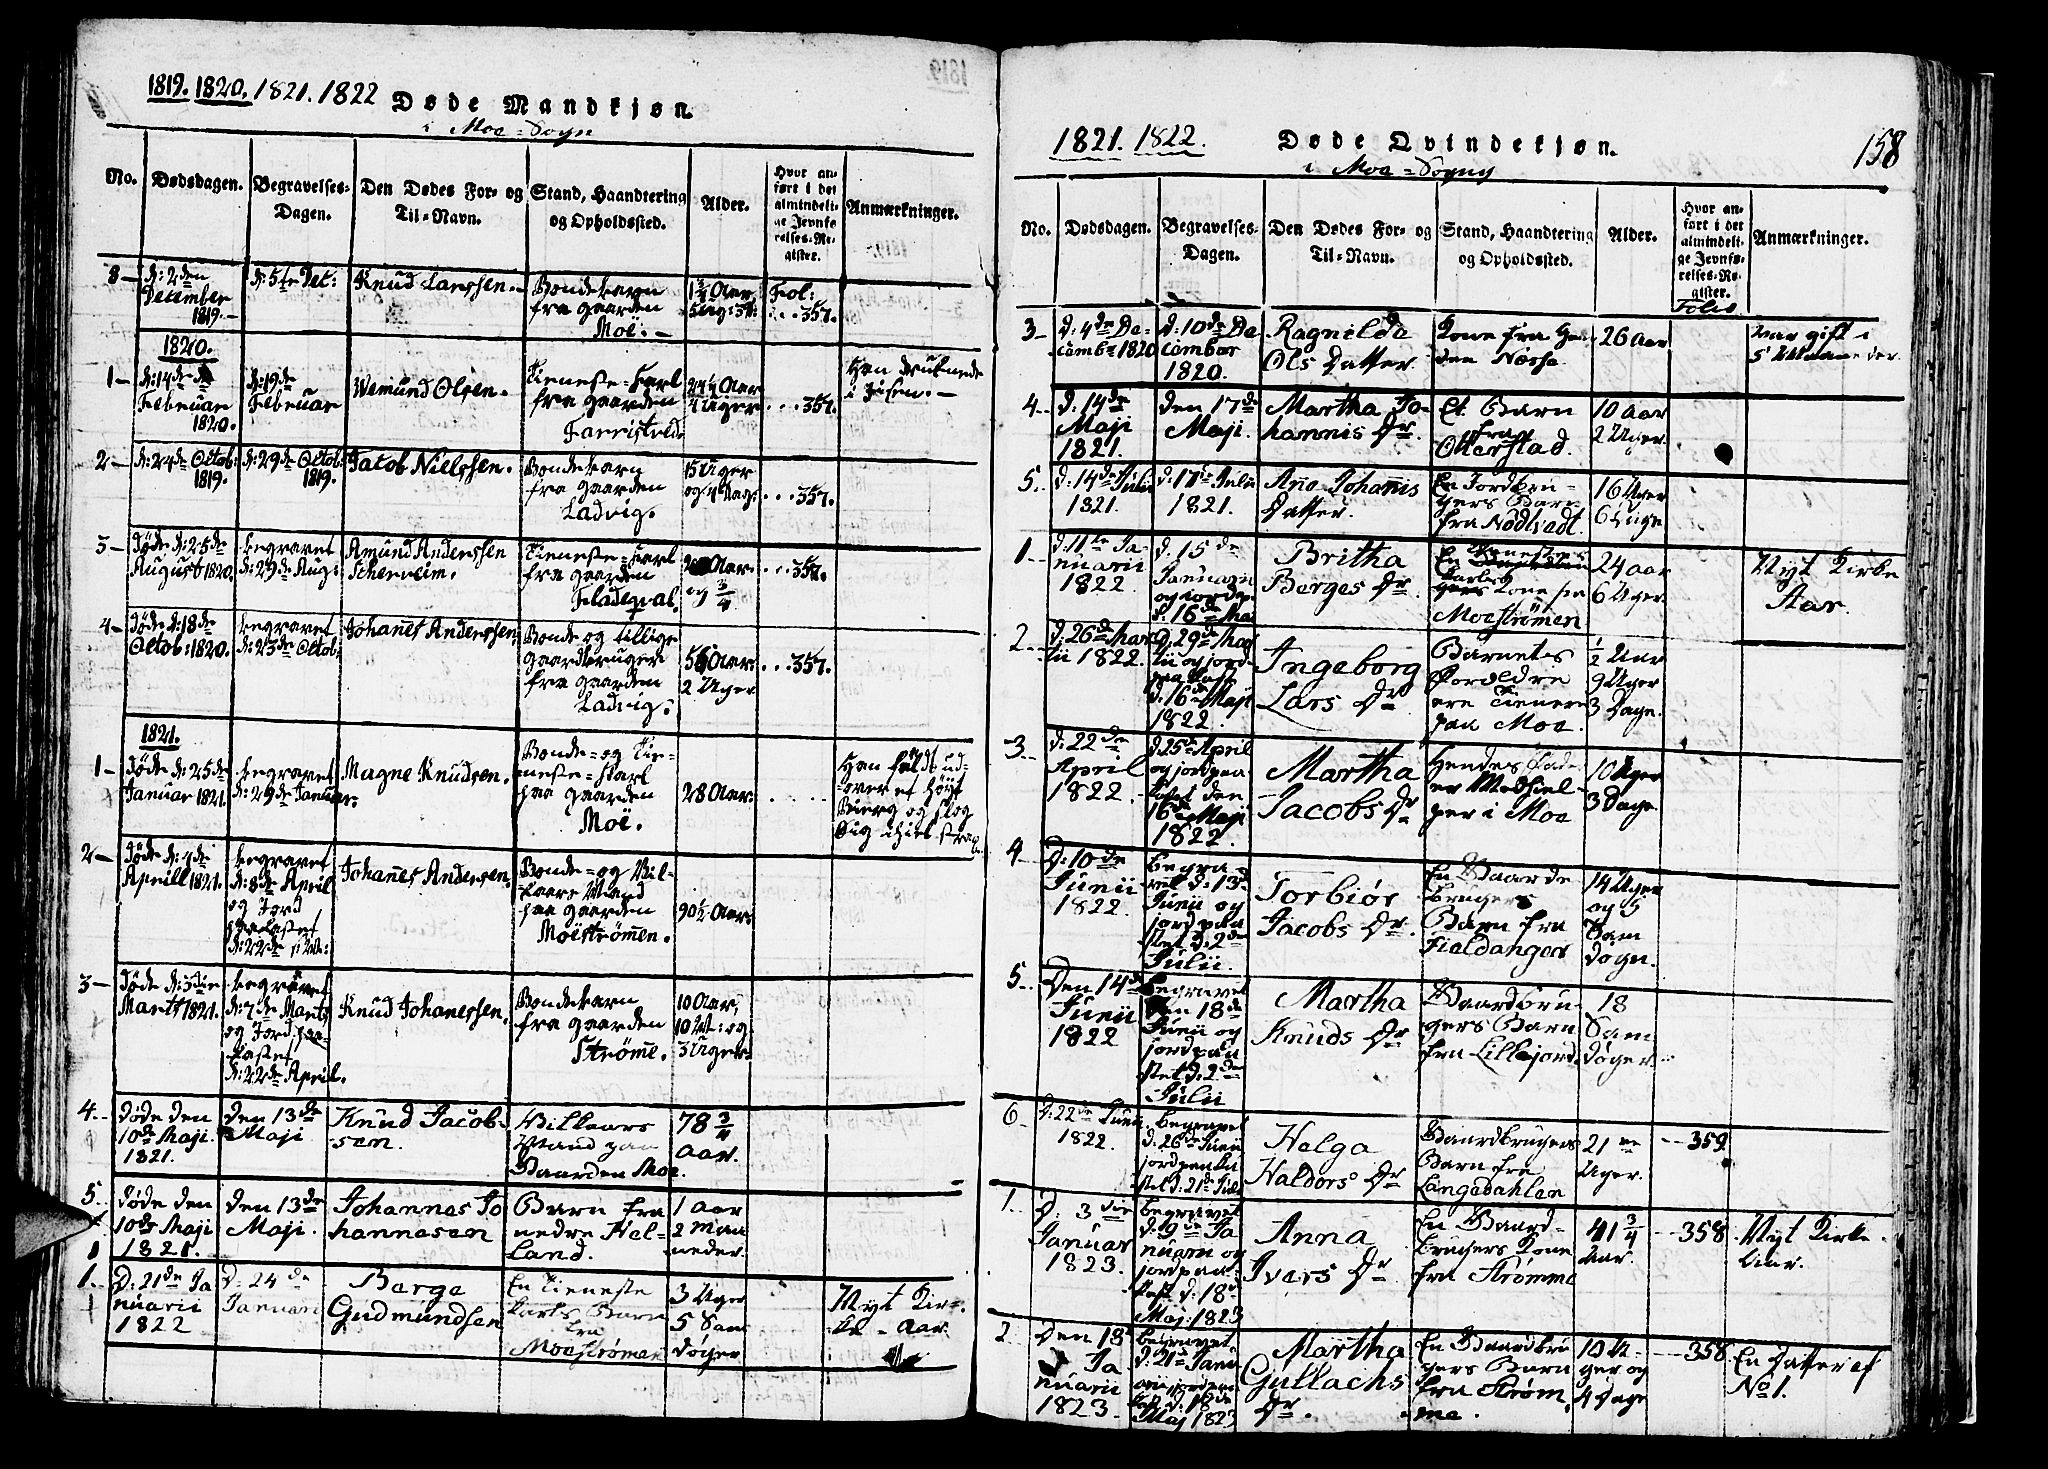 1819. 1820. 1821. 1822
Døde Mandkjøn.
i Moe-Sogn
No. Dødsdagen. Begravelses-Dagen. Den Dødes For- og Til-Navn. Stand, Haandtering og Opholdssted. Alder. Hvor anført i det almindelige Jevnførelses-Register. Anmærkninger.
8
d: 2den
December
1819.
d: 5te Dec:
Knud Larssen.
Bondebarn
fra gaarden
Moë.
1¾ Aar
Fol:
357.
1820.
1
d: 14de
Februar
1820.
d: 19de
Februar
Wemund Olsen.
Tieneste-Karl
fra gaarden
24½ Aar
4 Uger
357.
Han druknede
i
2
d: 24de Octob:
1819.
d: 29de Octob:
1819.
Jacob Nielssen.
Bondebarn
fra gaarden
Ladvig.
15 Uger
og 4 Dag:
357.
3
Døde d: 25de
August 1820.
begravet
d: 29de Aug:
Amund Anderssen
Scherreim.
Tieneste-Karl
fra gaarden
Fladeqval.
Aar
og ¾
357.
4
Døde d: 18de
Octob: 1820.
begravet
d: 23de Octob:
Johannes Anderssen.
Bonde og tillige
gaardbruger
fra gaarden
Ladvig.
56 Aar
2 Uger
357.
1821.
1
Døde d: 25de
Januar 1821.
begravet
d: 29de Januar.
Magne Knudsen.
Bonde- og Tie-
neste-Karl
paa gaarden
Moë.
28 Aar.
Han faldt ud-
over et høyt
Bierg og slog
Sig ihiel strax.
2
Døde d: 4de
Aprill 1821.
begravet
d: 8de April
og Jord
paakastet
d: 22de
Johannes Andersen.
Bonde- og Vil-
kaars Mand
paa gaarden
Moëstrømmen.
90½ Aar.
3
Døde d: 3die
Marts 1821.
begravet
d: 7de Marts
og Jord paa-
kastet
d: 22de April.
Knud Johannessen.
Bondebarn
fra gaarden
Strømme.
10 Aar,
10 M: og
3 Uger.
4.
Døde den
10de Maji
1821.
den 13de
Maji
Knud Jacob-
sen.
Vilkaars
Mand paa
Gaarden Moe.
78 ¾
aar.
5.
Døde den
10de Maji
1821.
Den 13de
Maji.
Johannes Jo
hannesen
Barn fra
nedre Hel-
land.
1 aar
2 maa
neder.
1.
D: 21de Ja
nuarii
1822
D: 24de
Januari
Børge
Gudmundsen
En Tieneste
Karls Barn
fra
Moestrømen
3 Uger
5 Søm
døger
Nyt Kir-
ke-Aar.
1821. 1822.
Døde Qvindekjøn.
158
i Moe-Sogn
No. Dødsdagen. Begravelses-Dagen. Den Dødes For- og Til-Navn. Stand, Haandtering og Opholdssted. Alder. Hvor anført i det almindelige Jevnførelses-Register. Anmærkninger.
Folio
3
D: 4de De-
cemb: 1820
D: 10de De
cember
1820.
Ragnilda
Ols Datter.
Kone fra Gaar
den Næsse
26 aar
var gift i
5 Maaneder.
4.
D: 14de
Maji
1821.
Den 17de
Maji.
Martha Jo-
hannis Dr.
Et Barn
fra
Okerstad.
10 aar
2 Uger.
5.
D: 14de Julii
1821.
D: 17de Julii
1821.
Ana Johanis
Datter.
En Jordbru-
gers Barn
fra Nødtvedt.
16 Uger
1
D: 11te Ja-
nuarii
1822
D. 15de
Januarii
og jordp.
d. 16de Mai
Britha
Børges Dr.
En
Kone fra
Moestrømen
24 aar
6 Uger.
Nyt Kirke
Aar.
2.
D: 26de Mar
tii 1822.
D. 29de Mar
tii og jord-
paakast
d. 16de Maji
1822.
Ingeborg
Lars Dr
Barnets
Forældre
ere Tienere
paa Moe
½ Aar
9 Uger
3 Dage.
3.
D: 22de
April
1822.
D. 25de April
og jordpaa-
kastet den
16de Maji
1822.
Martha
Jacobs Dr
Hendes Fader
er Medhiel-
per i Moe
10 Uger
3 Dage
4
D: 10de
Junii
1822.
begra-
vet d. 13de
Junii og
jordpaa
stet d. 2den
Julii
Torbiør
Jacobs Dr.
En Gaard-
brugers
Barn fra
Fieldanger
14 Uger
og 5
Søm
døgn.
5.
Den 14de
Junii
1822
begravet
Den 18de
Junii og
jordpaa
stet d: 2den
Julii
Martha
Knuds Dr
Gaardbru-
gers Barn
fra Lillejord
18
Søm
døger.
6
D: 22de Junii
1822.
begravet
d. 26de Junii
jordpaaka
stet d: 21de Julii
Helga
Haldors Dr
Gaardbrugers
Barn fra
Langedahlen
21 ne
Uger.
359
1.
D. 3die
Januar
1823.
begravet
d. 9de Ja
nuarii og
jordpaa-
kast d. 18de
Maj 1823
Anna
Ivers Dr
En Gaard-
brugers Kone
fra Strømme
41 ¾
Aar.
358
Nyt Kirke-
Aar.
2
Den 18de
Ja
nuarii
1823.
begravet
d. 21de Janu
arii
d. 18de
Maj 1823
Martha
Gullachs
Dr.
En Gaardbru
gers Barn
fra Strøm
me.
10 U-
ger og
4 Dage
358
En Datter af
No 1.